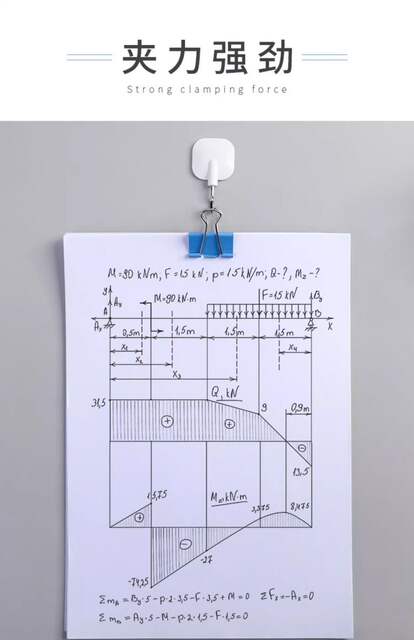 夹力强劲
Strong clamping force
M=90 kNm, F=15 kN; p=15 kN/m; Q-?, Mz-?
y
M=90 kN·m
F=15 kN
By
Ax
A
B
Ax
x
0,5m
1,5m
1,5m
1,5m
x1
x2
x3
x4
Q, kN
31,5
9
0,9m
13,5
15,75
M, kN·m
3,375
8,475
-27
-74,25
ΣmA=By·5-p·2·3,5-F·3,5+M=0 ΣFx=-Ax=0
Σm =Ay·5-M-p·2·1,5-F·1,5=0